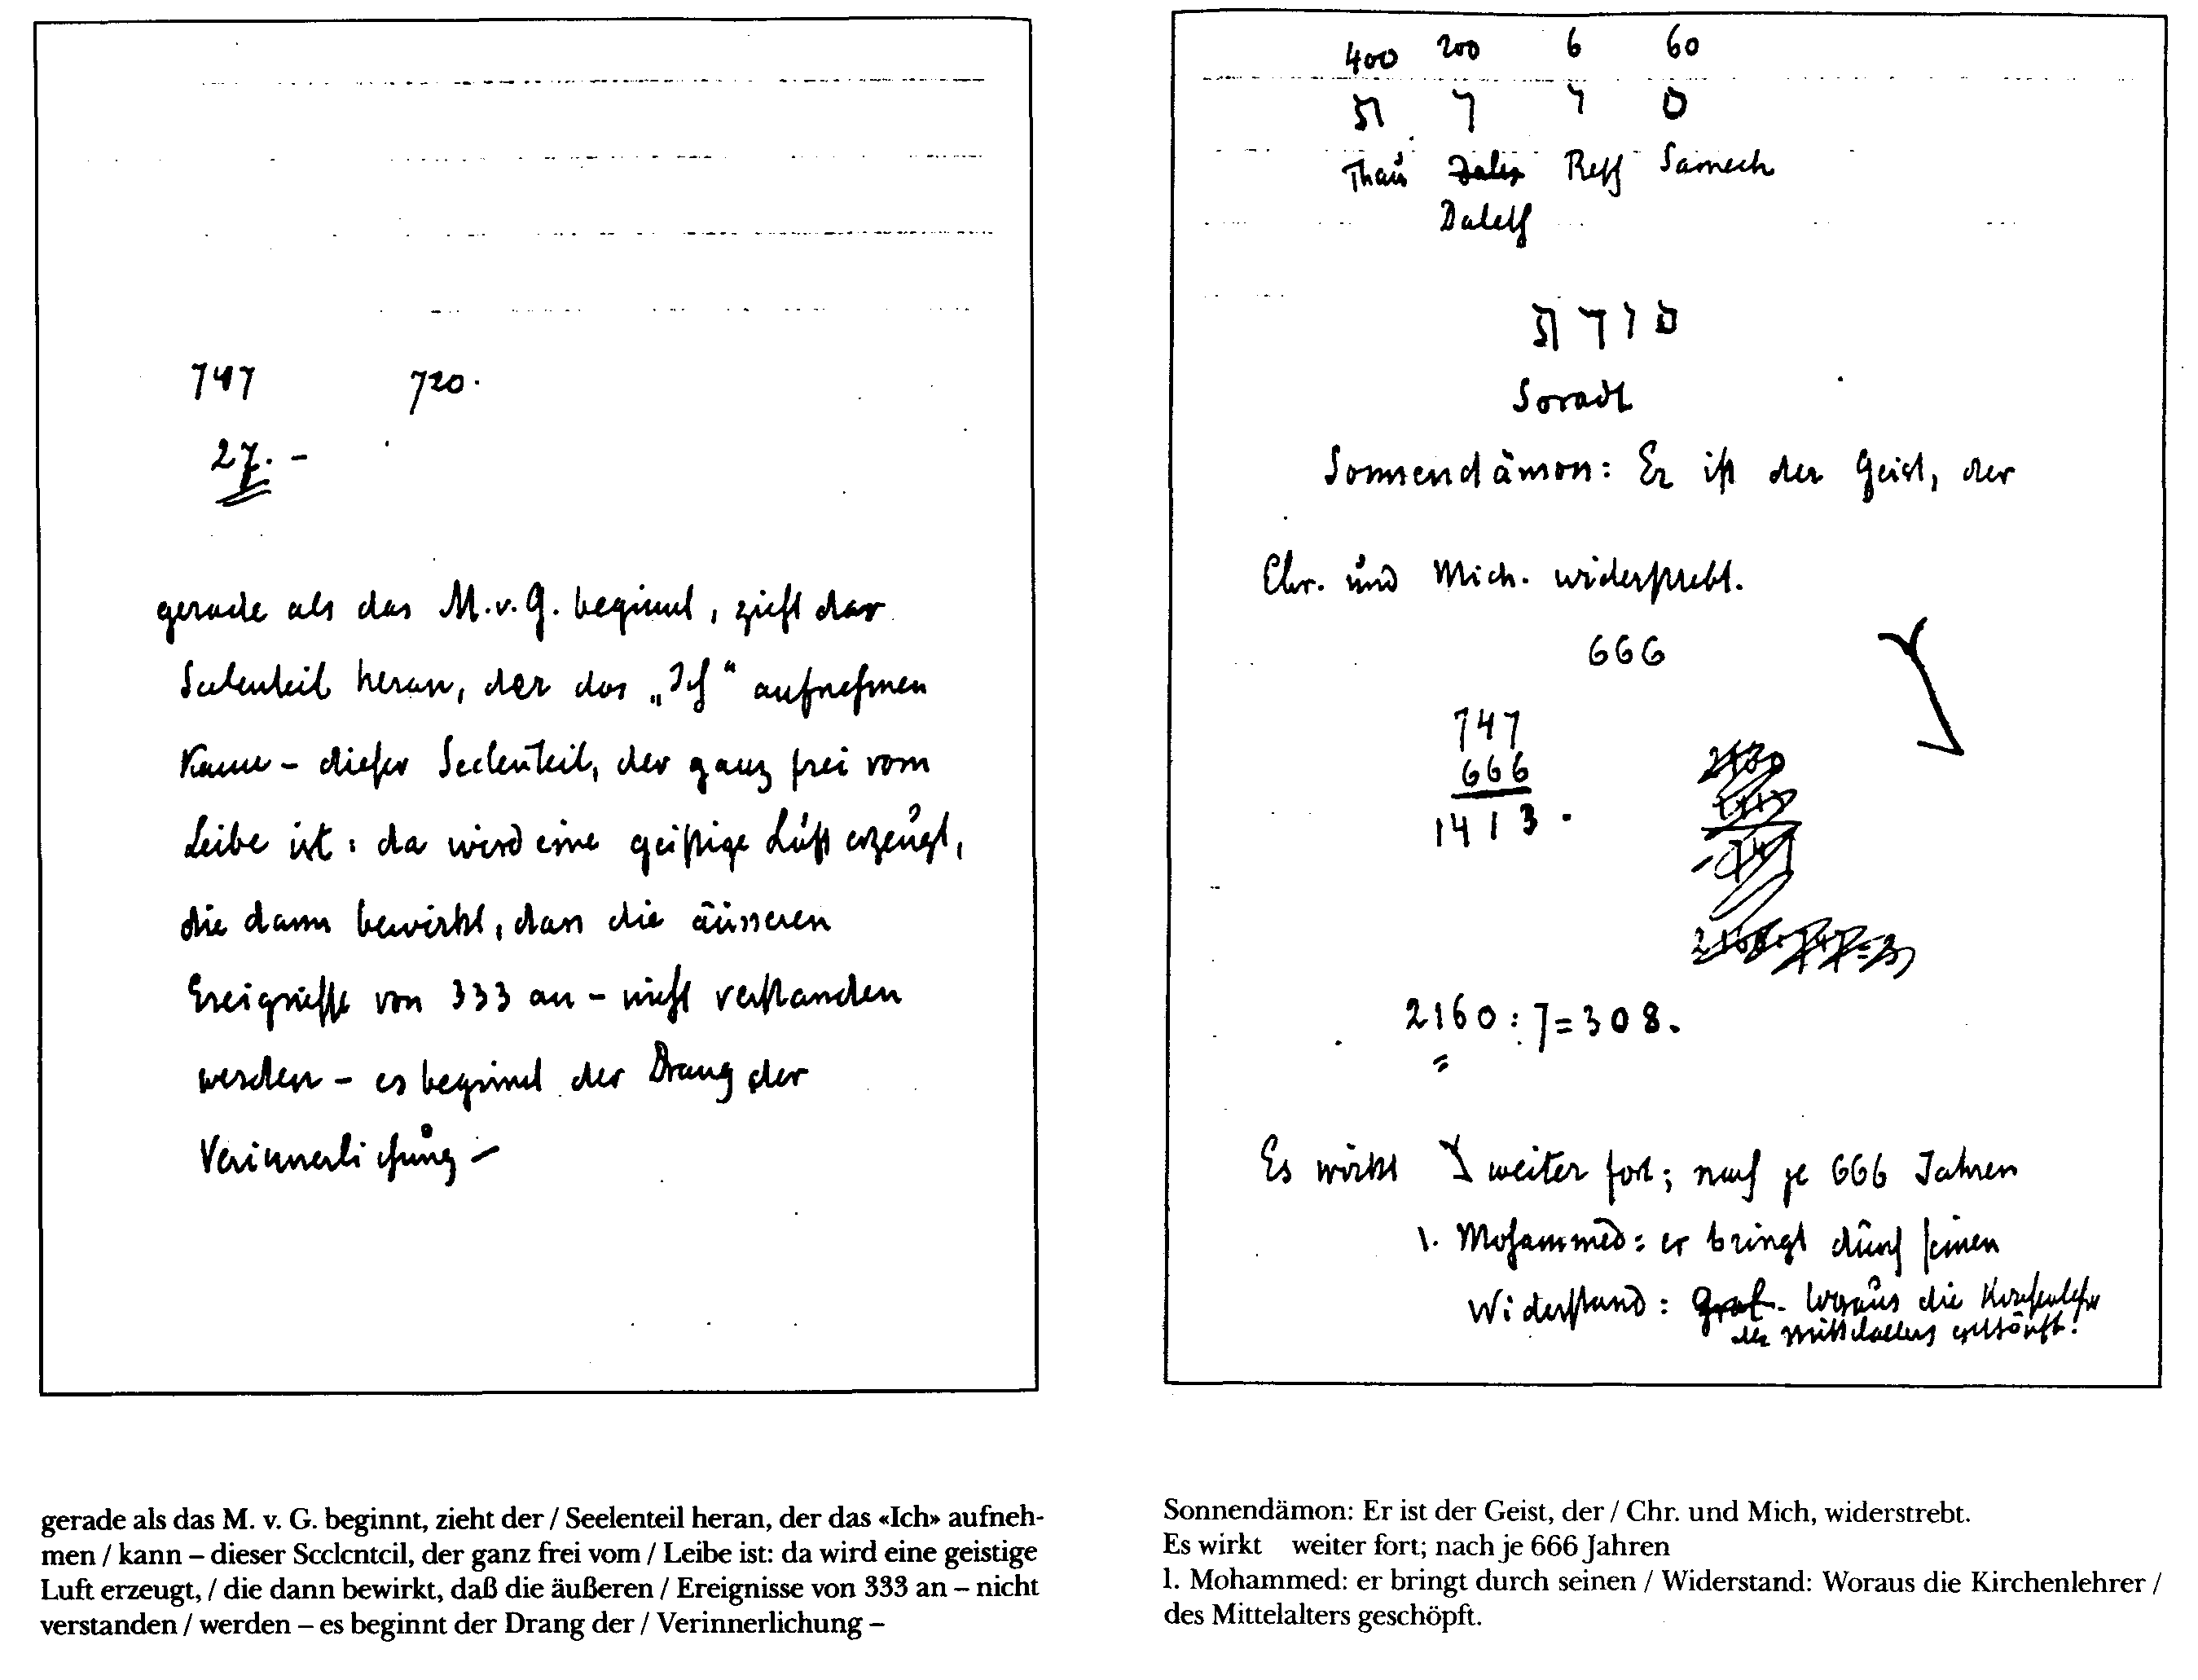 747 720.
27. –
gerade als das M. v. G. beginnt, zieht der
Seelenteil heran, der das „Ich“ aufnehmen
kann – dieser Seelenteil, der ganz frei vom
Leibe ist: da wird eine geistige Luft erzeugt,
die dann bewirkt, dass die äusseren
Ereignisse von 333 an – nicht verstanden
werden – es beginnt der Drang der
Verinnerlichung –
gerade als das M. v. G. beginnt, zieht der / Seelenteil heran, der das «Ich» aufneh-
men / kann – dieser Scclcntcil, der ganz frei vom / Leibe ist: da wird eine geistige
Luft erzeugt, / die dann bewirkt, daß die äußeren / Ereignisse von 333 an – nicht
verstanden / werden – es beginnt der Drang der / Verinnerlichung –
400 200 6 60
ת ר ו ס
Thau Reff Samech
Daleth
ת ר ו ס
Soradt
Sonnendämon: Er ist der Geist, der
Chr. und Mich. widerstrebt.
666
747
666
1413.
2160 : 7 = 308.
Es wirkt weiter fort; nach je 666 Jahren
1. Mohammed: er bringt durch seinen
Widerstand: Woraus die Kirchenlehrer
des Mittelalters geschöpft!
Sonnendämon: Er ist der Geist, der / Chr. und Mich, widerstrebt.
Es wirkt weiter fort; nach je 666 Jahren
1. Mohammed: er bringt durch seinen / Widerstand: Woraus die Kirchenlehrer /
des Mittelalters geschöpft.